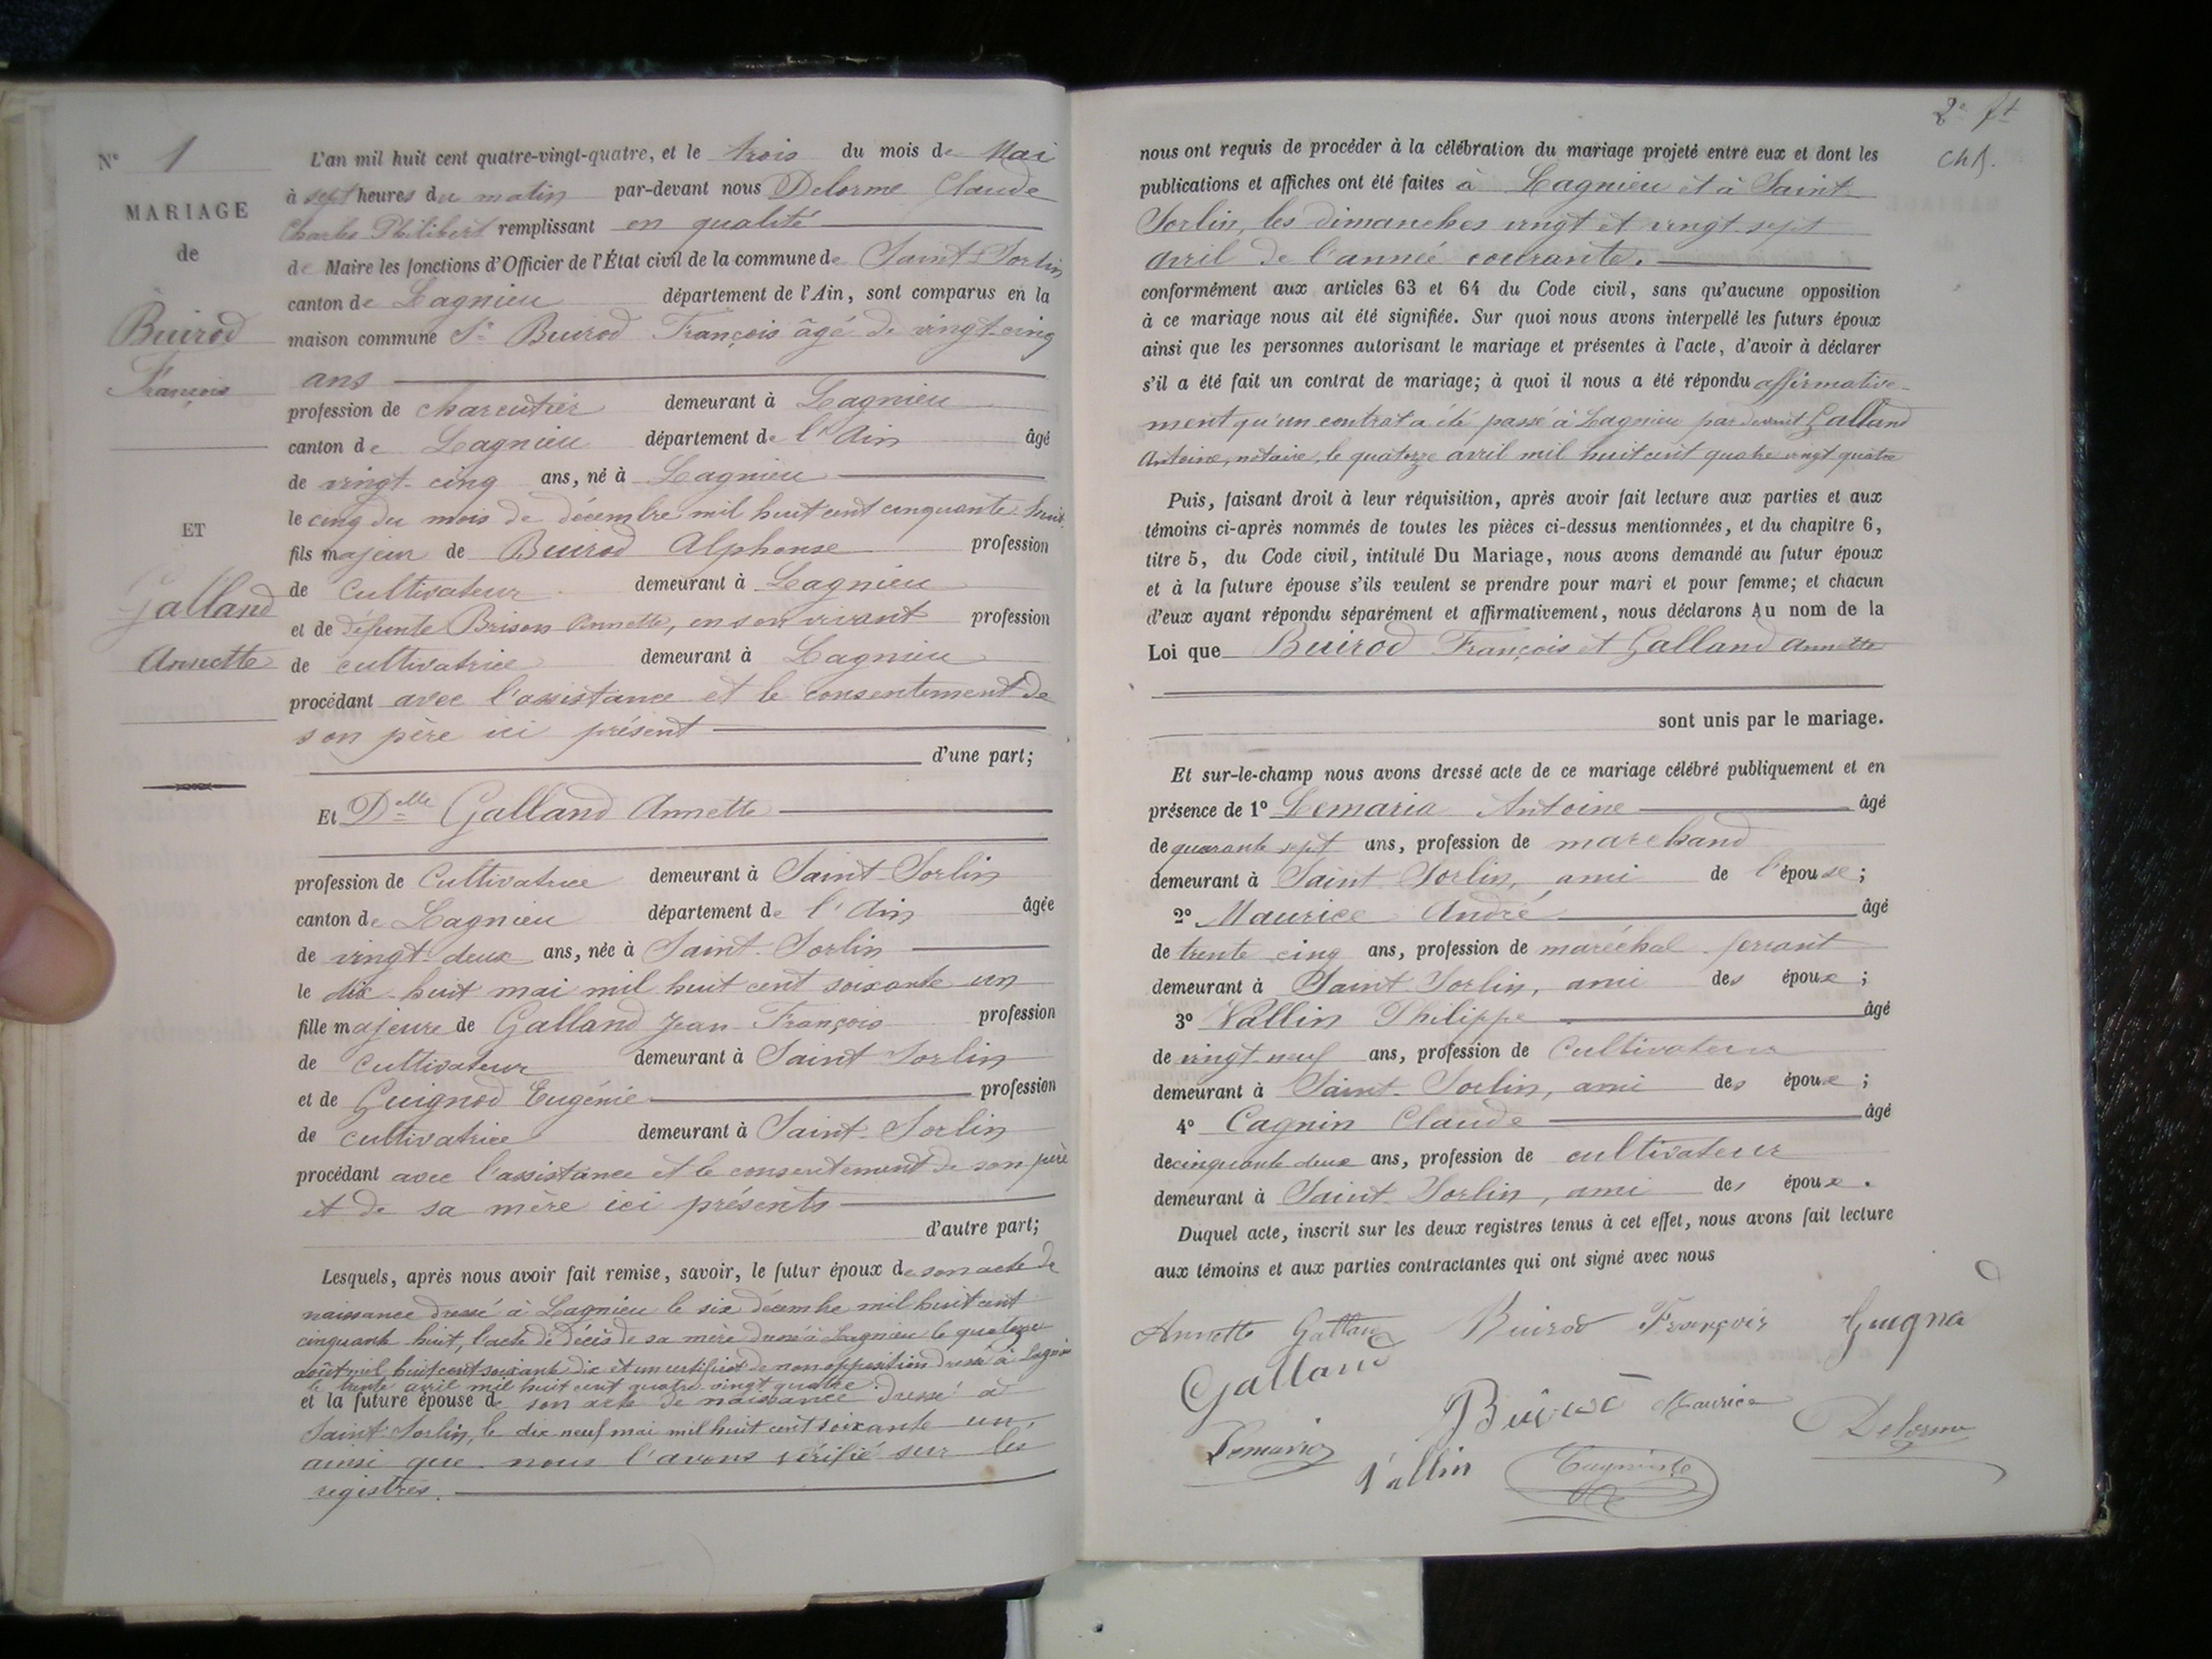 N° 1
MARIAGE
de
Buirod
François
ET
Galland
Annette
L'an mil huit cent quatre-vingt-quatre, et le trois du mois de Mai
à sept heures du matin par-devant nous Delorme Claude
Charles Philibert remplissant en qualité
de Maire les fonctions d'Officier de l'État civil de la commune de Saint-Sorlin
canton de Lagnieu département de l'Ain, sont comparus en la
maison commune Sr Buirod François âgé de vingt-cinq
ans
profession de charcutier demeurant à Lagnieu
canton de Lagnieu département de l'Ain âgé
de vingt-cinq ans, né à Lagnieu
le cinq du mois de décembre mil huit cent cinquante-huit
fils majeur de Buirod Alphonse profession
de Cultivateur demeurant à Lagnieu
et de défunte Brison Annette, en son vivant profession
de cultivatrice demeurant à Lagnieu
procédant avec l'assistance et le consentement de
son père ici présent
d'une part;
Et Delle Galland Annette
profession de Cultivatrice demeurant à Saint-Sorlin
canton de Lagnieu département de l'Ain âgée
de vingt-deux ans, née à Saint-Sorlin
le dix-huit mai mil huit cent soixante un
fille majeure de Galland Jean-François profession
de cultivateur demeurant à Saint Sorlin
et de Guignod Eugénie profession
de cultivatrice demeurant à Saint-Sorlin
procédant avec l'assistance et le consentement de son père
et de sa mère ici présents
d'autre part;
Lesquels, après nous avoir fait remise, savoir, le futur époux de son acte de
naissance dressé à Lagnieu le six décembre mil huit cent
cinquante huit, l'acte de décès de sa mère dressé à Lagnieu le quatorze
août mil huit cent soixante dix et un certificat de non opposition dressé à Lagnieu
le trente avril mil huit cent quatre-vingt quatre.
et la future épouse de son acte de naissance dressé à
Saint-Sorlin, le dix neuf mai mil huit cent soixante un,
ainsi que nous l'avons vérifié sur les
registres.
2e ft
nous ont requis de procéder à la célébration du mariage projeté entre eux et dont les
publications et affiches ont été faites à Lagnieu et à Saint-
Sorlin, les dimanches vingt et vingt-sept
avril de l'année courante.
conformément aux articles 63 et 64 du Code civil, sans qu'aucune opposition
à ce mariage nous ait été signifiée. Sur quoi nous avons interpellé les futurs époux
ainsi que les personnes autorisant le mariage et présentes à l'acte, d'avoir à déclarer
s'il a été fait un contrat de mariage; à quoi il nous a été répondu affirmative-
ment qu'un contrat a été passé à Lagnieu par devant Galland
Antoine, notaire, le quatorze avril mil huit cent quatre vingt quatre
Puis, faisant droit à leur réquisition, après avoir fait lecture aux parties et aux
témoins ci-après nommés de toutes les pièces ci-dessus mentionnées, et du chapitre 6,
titre 5, du Code civil, intitulé Du Mariage, nous avons demandé au futur époux
et à la future épouse s'ils veulent se prendre pour mari et pour femme; et chacun
d'eux ayant répondu séparément et affirmativement, nous déclarons Au nom de la
Loi que Buirod François et Galland Annette
sont unis par le mariage.
Et sur-le-champ nous avons dressé acte de ce mariage célébré publiquement et en
présence de 1° Lemaria Antoine âgé
de quarante sept ans, profession de marchand
demeurant à Saint Sorlin, ami de l'épouse;
2° Maurice André âgé
de trente cinq ans, profession de maréchal-ferrant
demeurant à Saint Sorlin, ami des époux;
3° Vallin Philippe âgé
de vingt neuf ans, profession de Cultivateur
demeurant à Saint-Sorlin, ami des époux;
4° Cagnin Claude âgé
de cinquante deux ans, profession de cultivateur
demeurant à Saint Sorlin, ami des époux.
Duquel acte, inscrit sur les deux registres tenus à cet effet, nous avons fait lecture
aux témoins et aux parties contractantes qui ont signé avec nous
Annette Galland Buirod François Guignod
Galland
Buirod Maurice Delorme
Lemaria Vallin